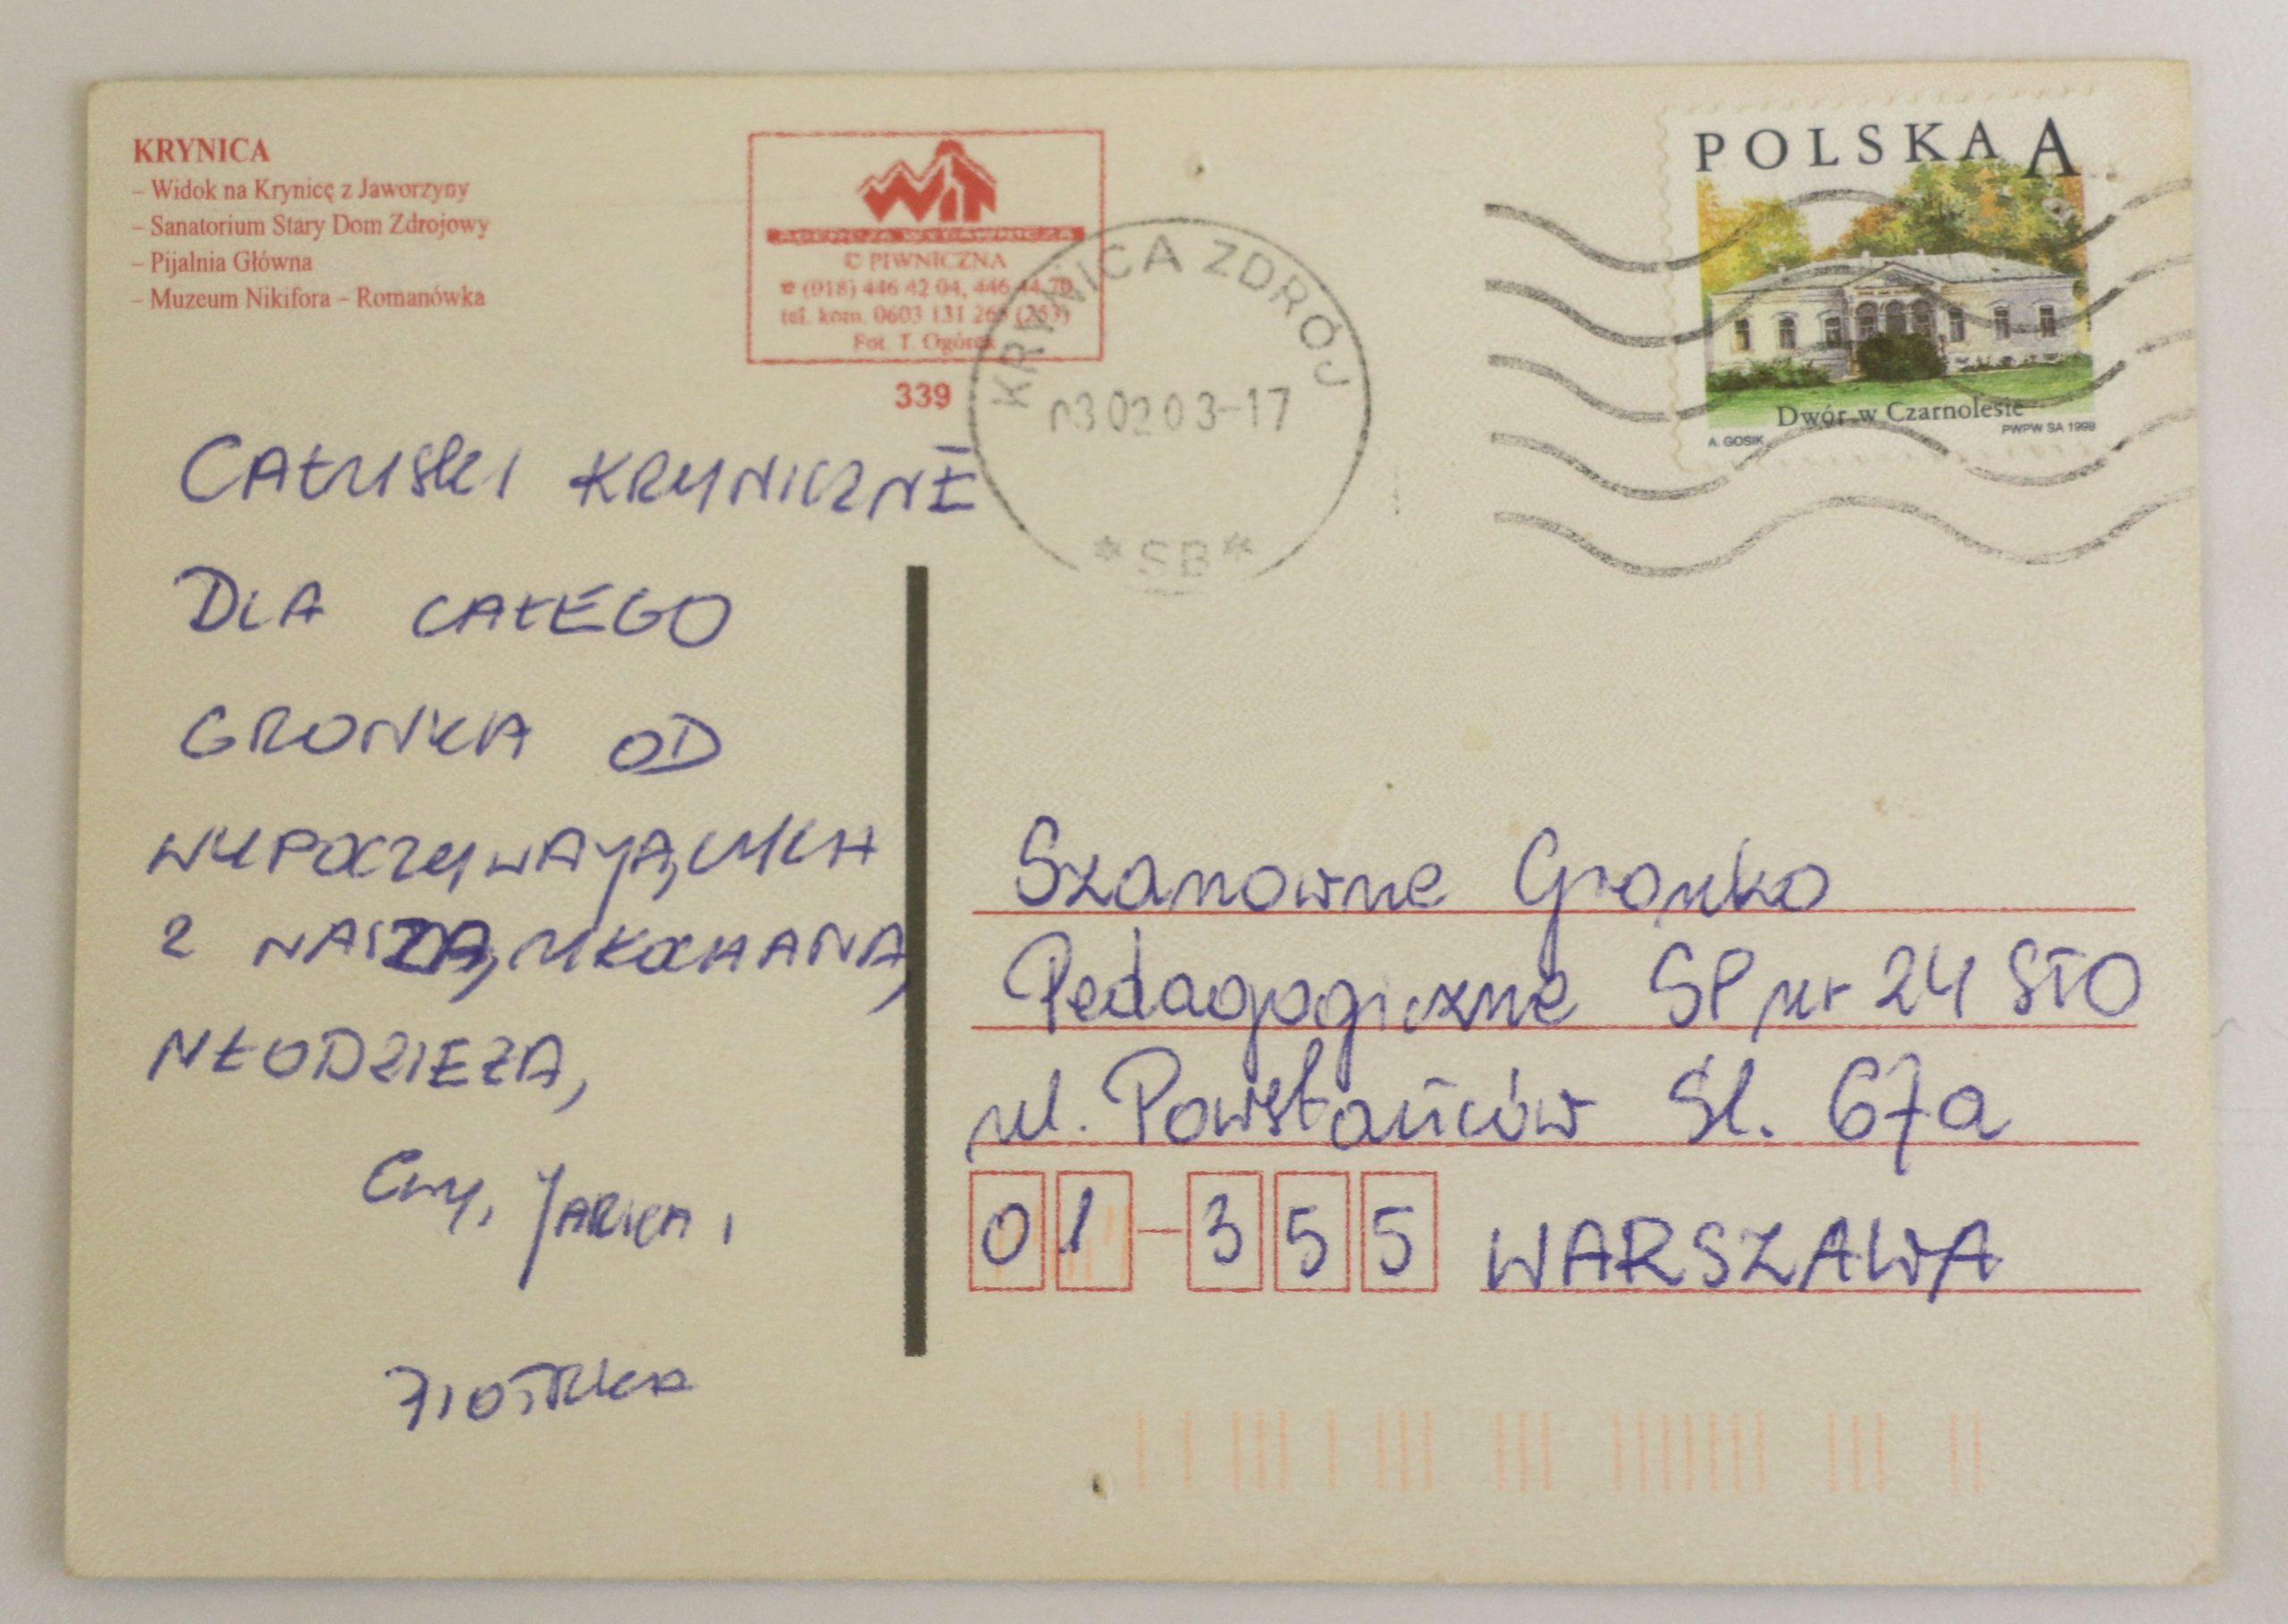 KRYNICA
– Widok na Krynicę z Jaworzyny
– Sanatorium Stary Dom Zdrojowy
– Pijalnia Główna
– Muzeum Nikifora – Romanówka
WiT
AGENCJA WYDAWNICZA
© PIWNICZNA
☎ (018) 446 42 04, 446 44 70
tel. kom. 0603 131 265 (253)
Fot. T. Ogórek
339
KRYNICA ZDRÓJ
030203-17
*SB*
POLSKA A
Dwór w Czarnolesie
A. GOSIK
PWPW SA 1998
CAŁUSKI KRYNICZNE
DLA CAŁEGO
GRONKA OD
WYPOCZYWAJĄCYCH
Z NASZĄ UKOCHANĄ
MŁODZIEŻĄ
JARKA,
Szanowne Gronko
Pedagogiczne SP nr 24 STO
ul. Powstańców Śl. 67a
01-355 WARSZAWA